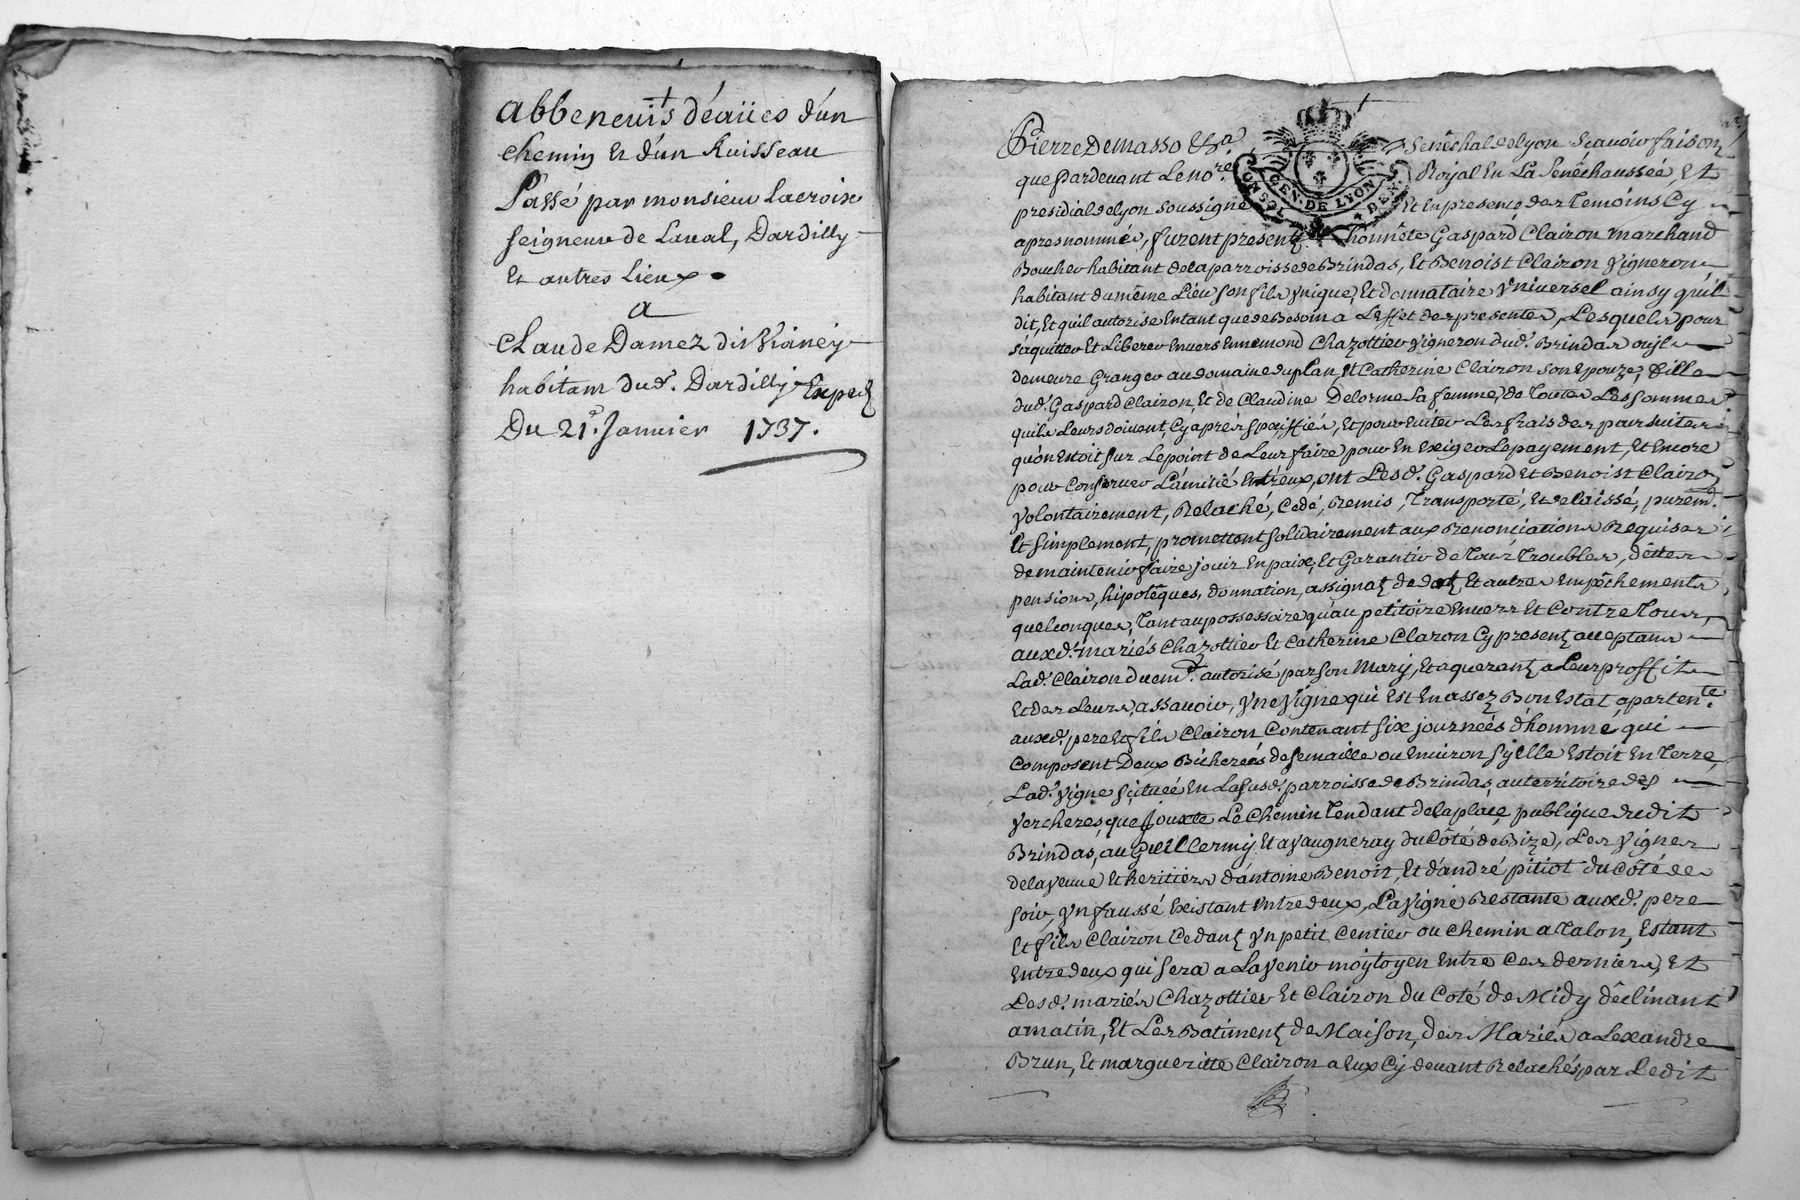 abbenevis d'eaües d'un
chemin et d'un Ruisseau
Passé par monsieur Lacroix
seigneur de Laval, Dardilly
Et autres Lieux.
a
Claude Damez dit Vianey
habitant dud. Dardilly Exped
Du 21e. Janvier 1737.
Pierre Demasso &a. Senêchal de Lyon Scavoir faisons
que Pardevant Le nore. Royal En La Senêchaussée, Et
presidial de Lyon soussigné Et En presence des Temoins Cy
apres nommés, furent presents honnête Gaspard Clairon marchand
Boucher habitant de la parroisse de Brindas, Et Benoist Clairon Vigneron
habitant du même Lieu son fils Vnique, Et donnataire Vniversel ainsy qu'il
dit, Et quil autorise Entant que de Besoin a Leffet des presentes, Lesquels pour
s'aquitter Et Liberer Envers Ennemond Chazottier Vigneron dud. Brindas ou il
demeure Granger au domaine du plan, Et Catherine Clairon son Epouze, fille
dud. Gaspard Clairon, Et de Claudine Delorme sa femme, de Toutes Les sommes
quils Leurs doivent, Cy aprés spaiffiés, Et pour Eviter Les frais des poursuites
qu'on Estoit sur Le point de Leur faire pour En Exiger Le payement, Et Encore
pour Conserver L'amitié Entr'eux, ont Lesd. Gaspard Et Benoist Clairon
Volontairement, Relaché, Cedé, Remis, Transporté, Et delaissé, puremt.
Et simplement, promettent solidairement aux Renonciations Requises
de maintenir faire jouir En paix, Et Garantir de Tous Troubles, dettes
pensions, hipotêques, donnation, assignats de dot Et autres Empêchements
quelconques, Tant au possessoire qu'au petitoire Envers Et Contre Tous,
auxd. mariés Chazottier Et Catherine Claron Cy presents acceptans
Lad. Clairon duemt. autorisé par son Mary, Et aquerants a Leur proffit
Et des Leurs, assavoir, Vne Vigne qui Est En assez Bon Estat apartente.
auxd. pere Et fils Clairon Contenant six journeés d'homme, qui
Composent Deux Bicherées de semaille ou Environ sy Elle Estoit En Terre,
Lad. Vigne scituée En Lasusd. parroisse de Brindas, au territoire des
Vercheres, que Jouxte Le Chemin Tendant de la place publique dudit
Brindas, au Guillermy Et a Vaugneray du Côté de Bize, Les Vignes
de la Veuve Et heritiers d'antome Benoit, Et d'andré pitiot du Côté de
soir, Vn faussé Existant Entre deux, La Vigne Restante auxd. pere
Et fils Clairon Cedants Vn petit Centier ou Chemin a Talon, Estant
Entre deux qui sera a Lavenir moytoyen Entre Ces derniers, Et
Lesd. mariés Chazottier Et Clairon du Coté de Midy dêclinant
a matin, Et Les Batiments de Maison, des Mariés aLexandre
Brun, Et margueritte Clairon a Eux Cy devant Relachés par Ledit
GEN. DE LYON